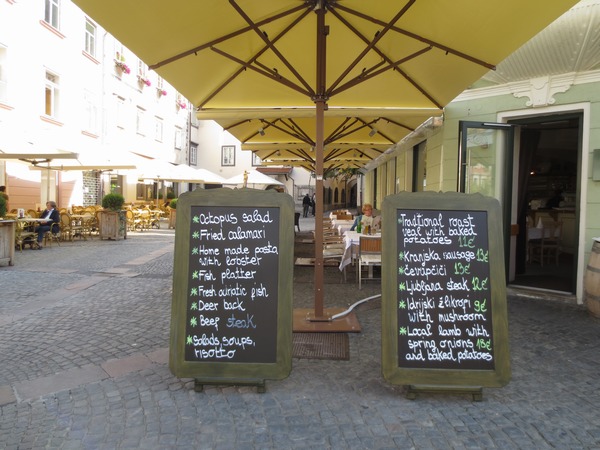 *Octopus salad
*Fried calamari
*Home made pasta
with lobster
*Fish platter
*Fresh adriatic fish
*Deer back
*Beef steak
*Salads, soups,
risotto
*Traditional roast
veal with baked
potatoes 11€
*Kranjska sausage 13€
*Čevapčiči 13€
*Ljubljana steak 12€
*Idrijski žlikrofi 9€
with mushroom
*Local lamb with
spring onions 18€
and baked potatoes